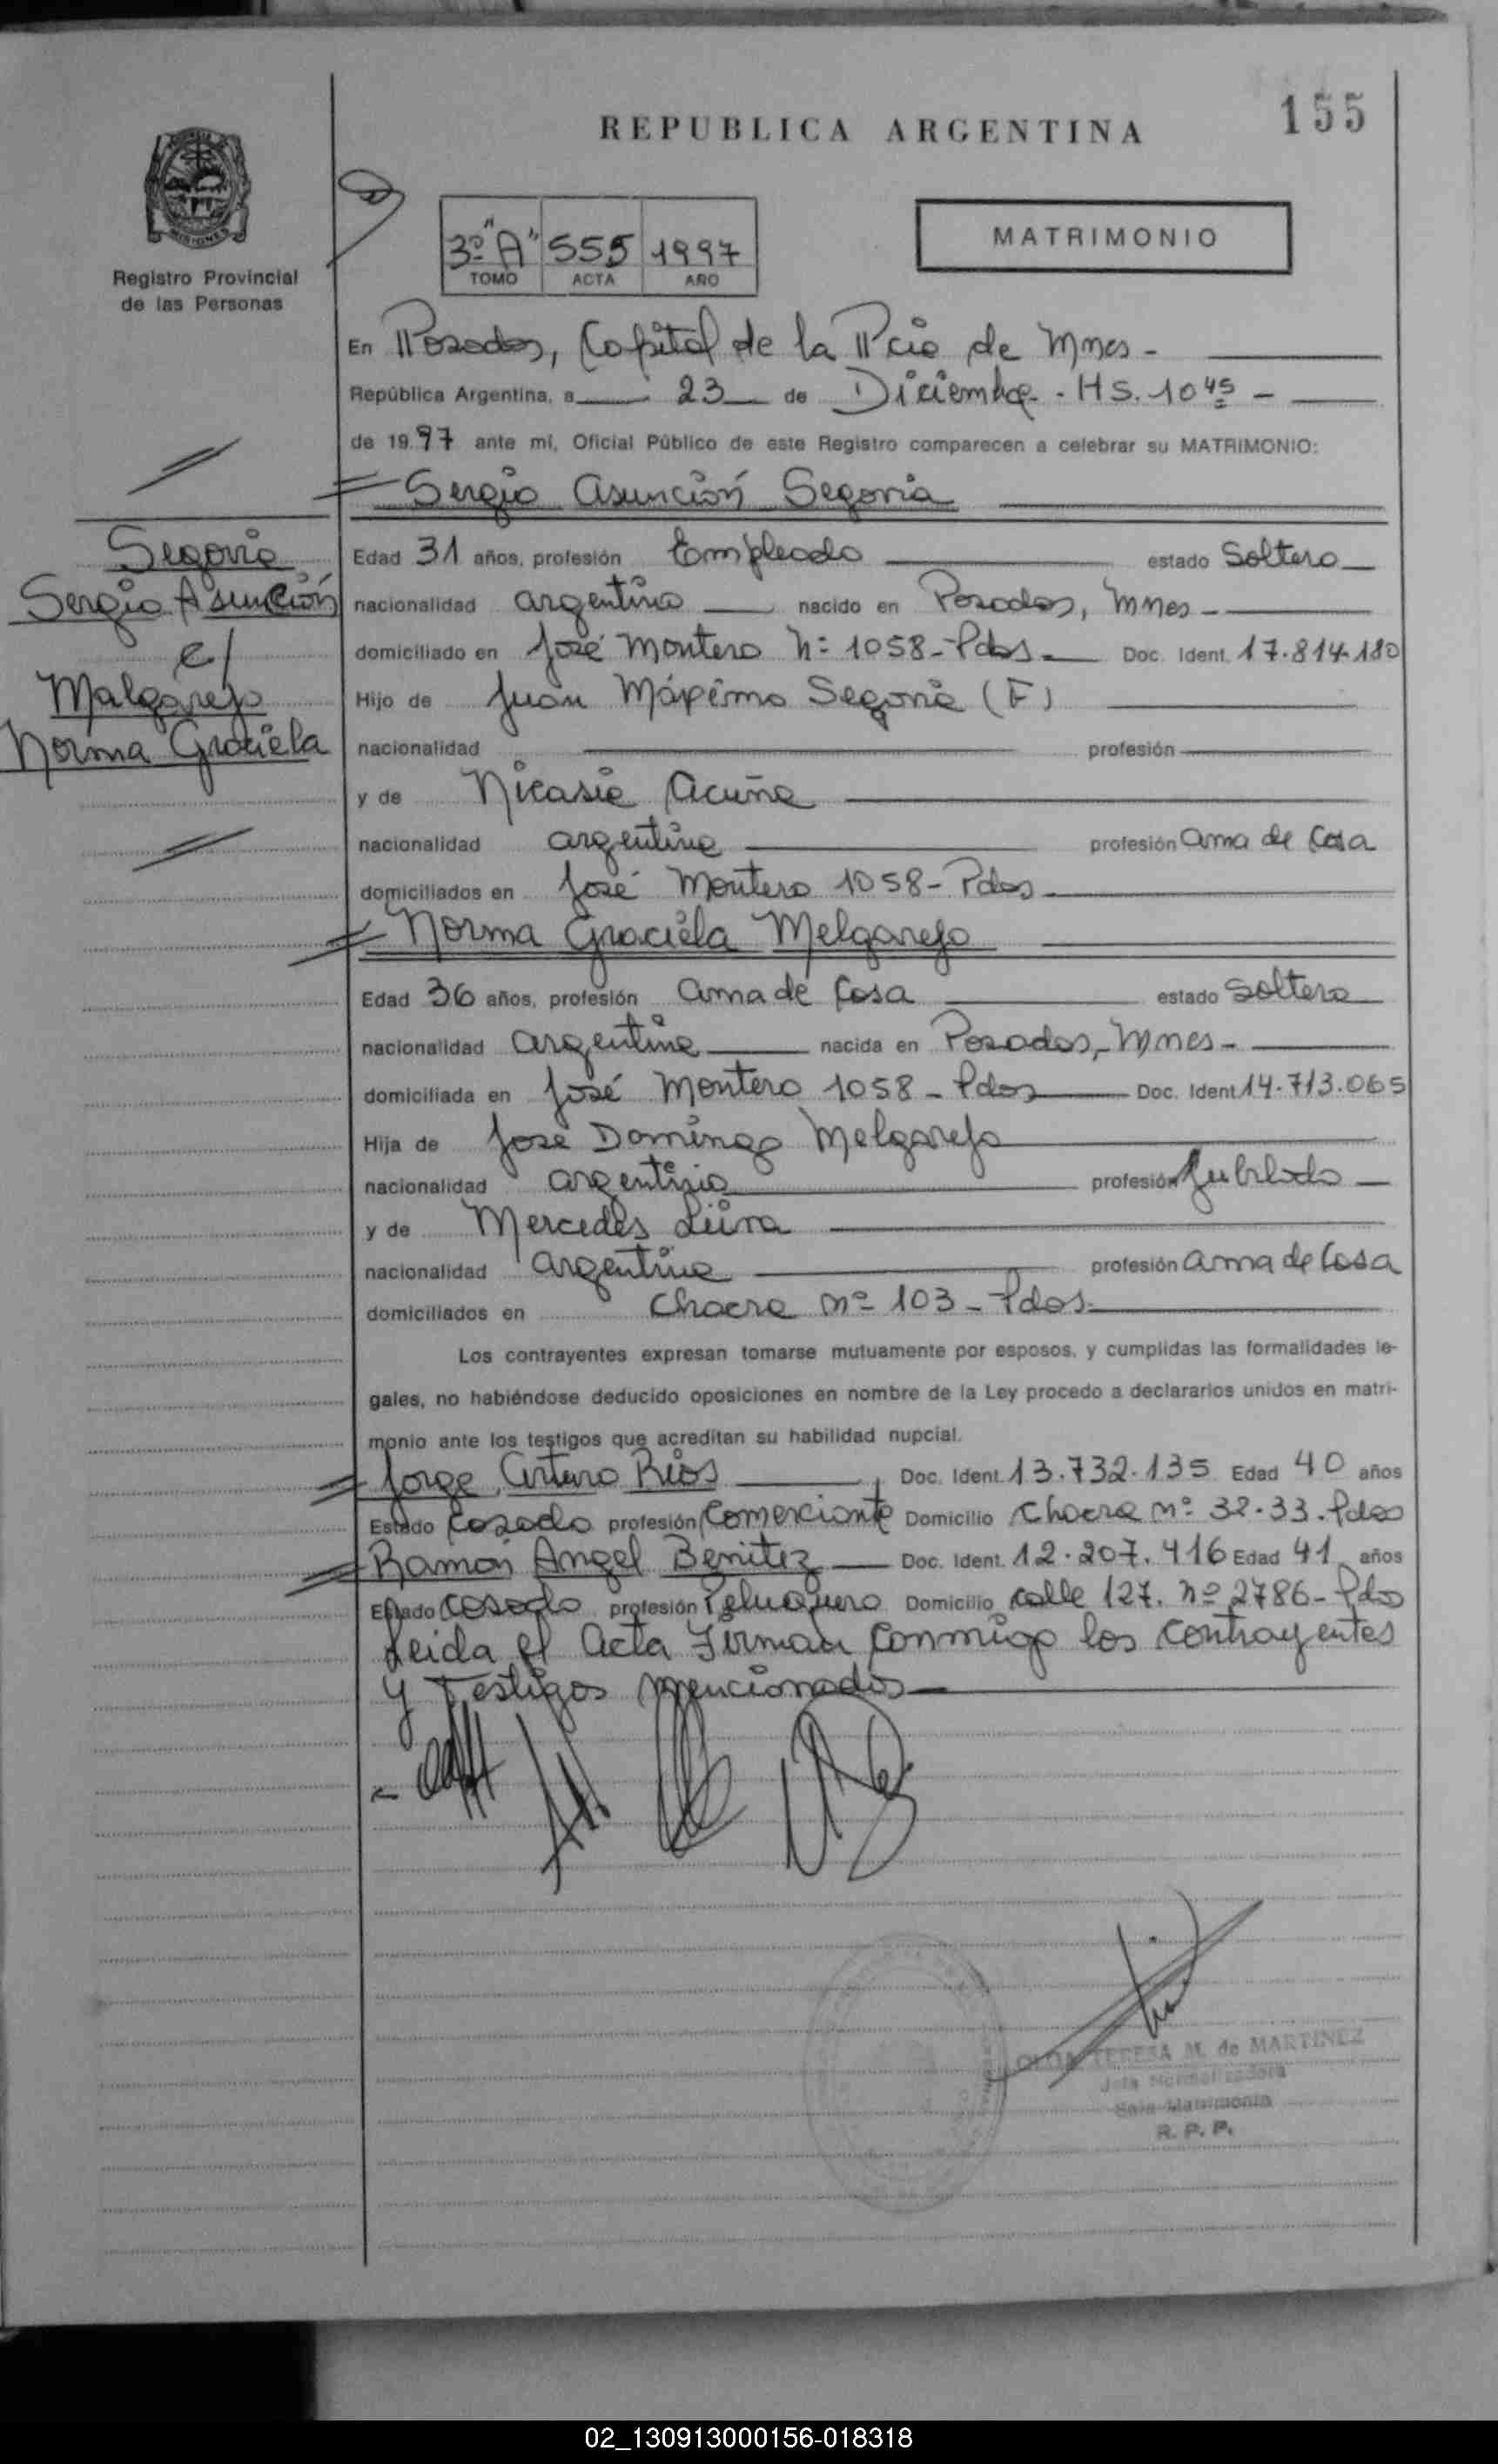 155
REPUBLICA ARGENTINA
MISIONES
Registro Provincial
de las Personas
3º "A" 555 1997
TOMO ACTA AÑO
MATRIMONIO
En Posadas, Capital de la Pcia de Mnes -
República Argentina, a 23 de Diciembre - HS. 10 45 -
de 1997 ante mí, Oficial Público de este Registro comparecen a celebrar su MATRIMONIO:
Sergio Asunción Segovia
Segovia
Sergio Asunción
c/
Malgarejo
Norma Graciela
Edad 31 años, profesión Empleado estado Soltero
nacionalidad argentino nacido en Posadas, Mnes -
domiciliado en José Montero Nº 1058 - Pdas - Doc. Ident. 17.814.180
Hijo de Juan Máximo Segovia (F)
nacionalidad profesión
y de Nicasia Acuña
nacionalidad argentina profesión ama de Casa
domiciliados en José Montero 1058 - Pdas
Norma Graciela Melgarejo
Edad 36 años, profesión ama de Casa estado Soltera
nacionalidad argentina nacida en Posadas, Mnes -
domiciliada en José Montero 1058 - Pdas Doc. Ident 14.713.065
Hija de Jose Domingo Melgarejo
nacionalidad argentino profesión Jubilado
y de Mercedes Leiva
nacionalidad argentina profesión ama de Casa
domiciliados en Chacra nº 103 - Pdas.
Los contrayentes expresan tomarse mutuamente por esposos, y cumplidas las formalidades le-
gales, no habiéndose deducido oposiciones en nombre de la Ley procedo a declararlos unidos en matri-
monio ante los testigos que acreditan su habilidad nupcial.
Jorge Arturo Rios Doc. Ident. 13.732.135 Edad 40 años
Estado Casado profesión Comerciante Domicilio Chacra nº 32-33. Pdas
Ramón Angel Benitez Doc. Ident. 12.207.416 Edad 41 años
Estado Casado profesión Peluquero Domicilio calle 127. nº 2786 - Pdas
Leida el Acta Firman conmigo los contrayentes
y Testigos mencionados
TERESA M. de MARTINEZ
Jefa Normalizadora
Sala Matrimonio
R. P. P.
02_130913000156-018318